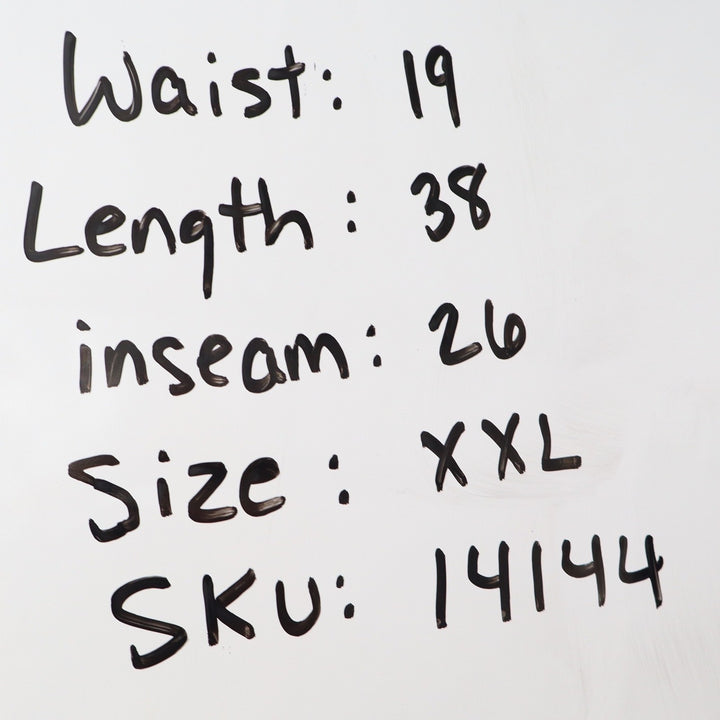 Waist: 19
Length: 38
inseam: 26
Size: XXL
SKU: 14144